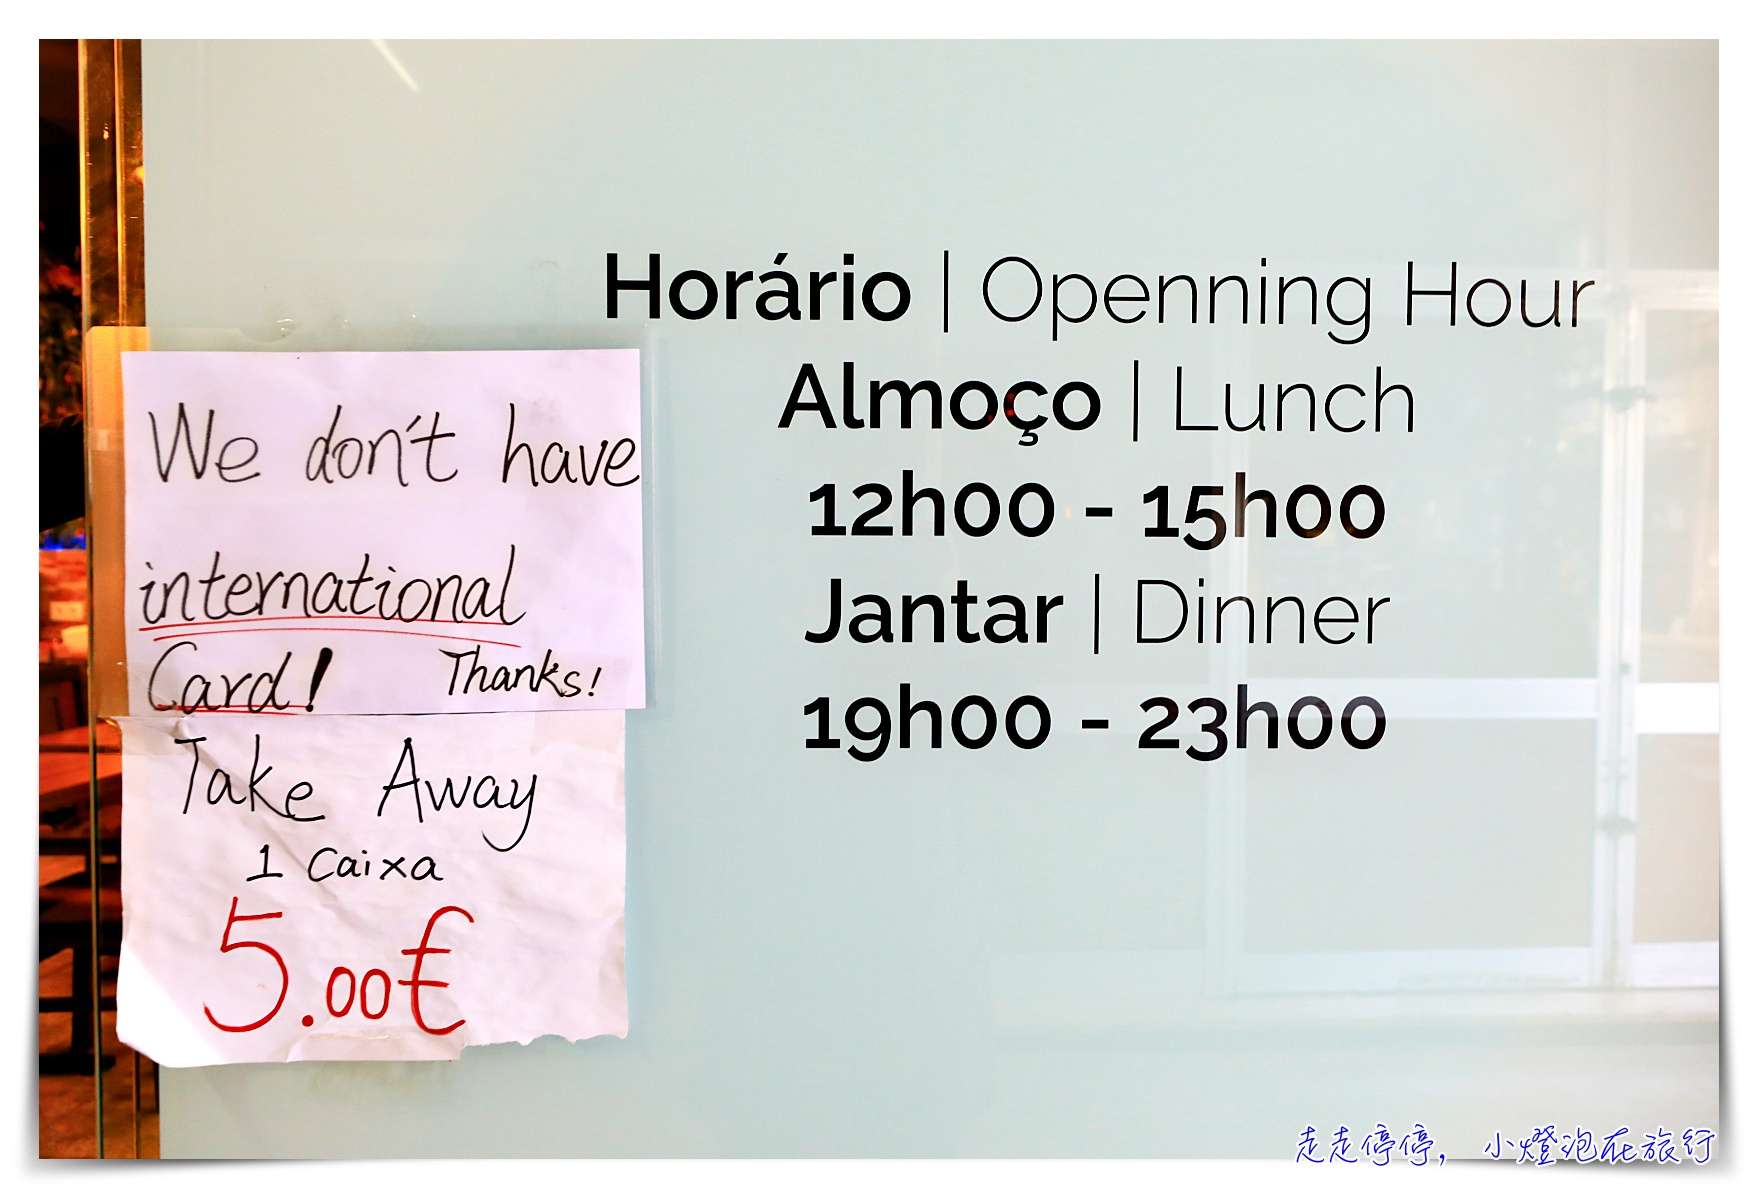 We don't have
international
Card! Thanks!
Take Away
1 Caixa
5.00€
Horário | Openning Hour
Almoço | Lunch
12h00 - 15h00
Jantar | Dinner
19h00 - 23h00
走走停停，小燈泡在旅行